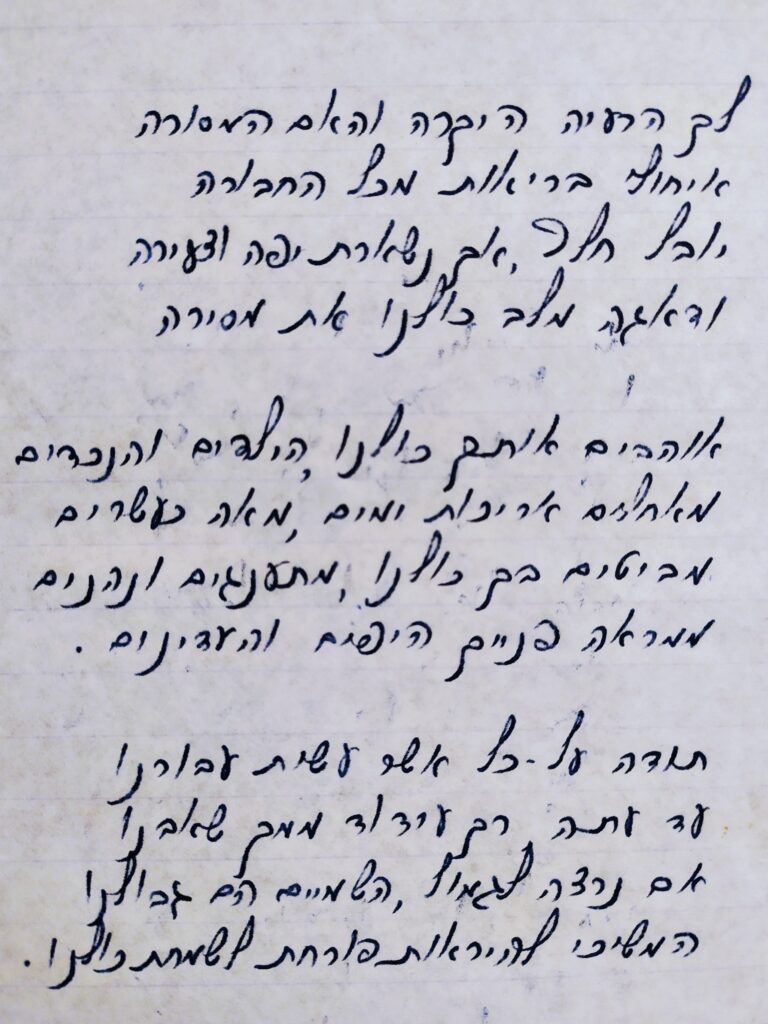 לך הרעיה היקרה והאם המסורה
איחולי בריאות מכל החבורה
יובל חלף, אך נשארת יפה וצעירה
ודאגה מלב כולנו את מסירה
אוהבים אותך כולנו, הילדים והנכדים
מאחלים אריכות ימים, מאה כעשרים
מביטים בך כולנו, מתענגים ונהנים
ממראה פנייך היפים והעדינים.
תודה על-כל אשר עשית עבורנו
עד עתה רק עידוד ממך שאבנו
אם נרצה לגמול, השמיים הם גבולנו
המשיכי להיראות פורחת לשמחת כולנו.